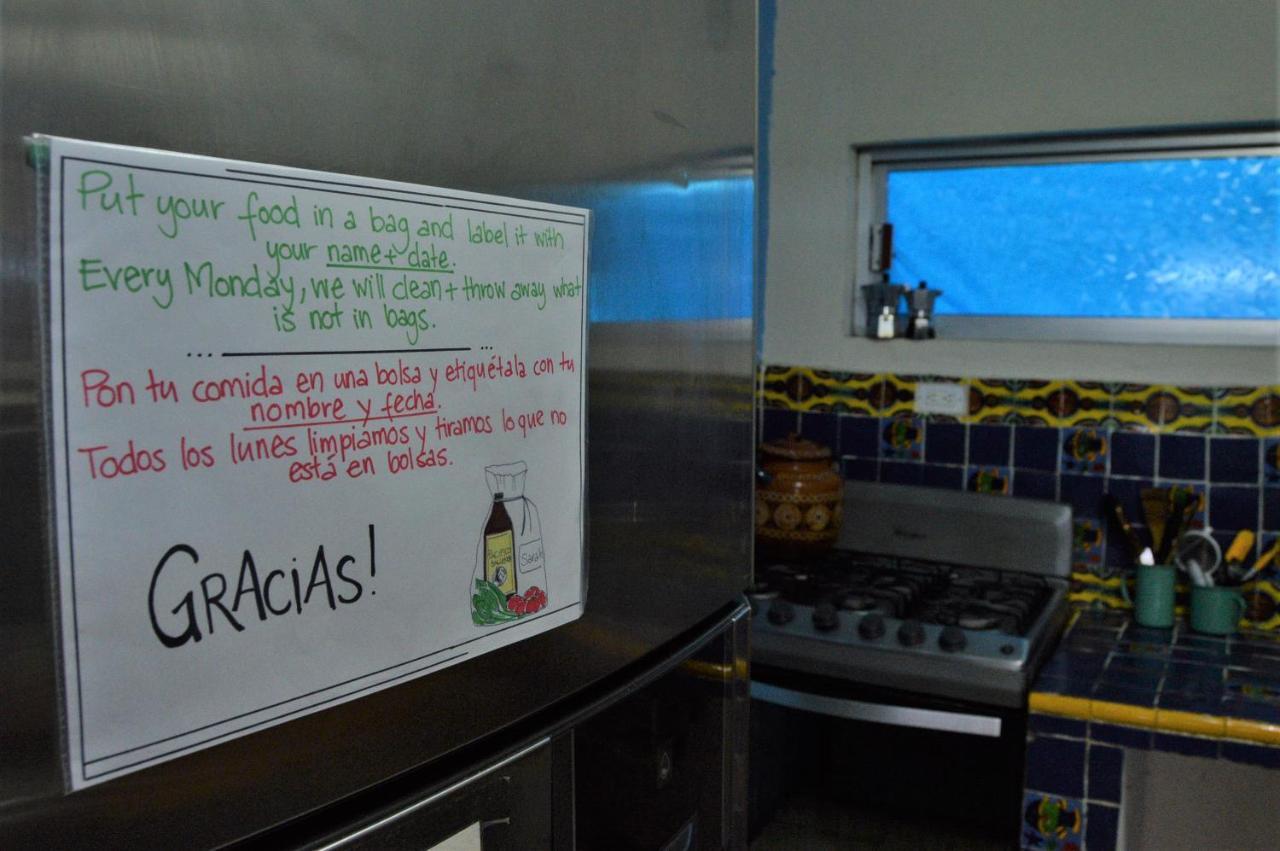 Put your food in a bag and label it with
your name + date.
Every Monday, we will clean + throw away what
is not in bags.
Pon tu comida en una bolsa y etiquétala con tu
nombre y fecha.
Todos los lunes limpiamos y tiramos lo que no
está en bolsas.
GRACiAS!
Sarah